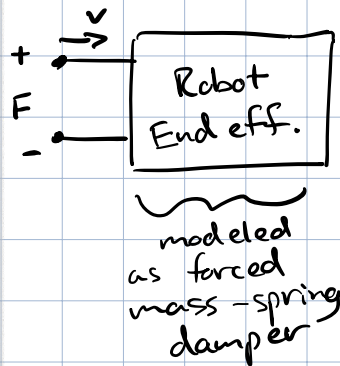 v
+
F
-
Robot
End eff.
modeled
as forced
mass-spring
damper